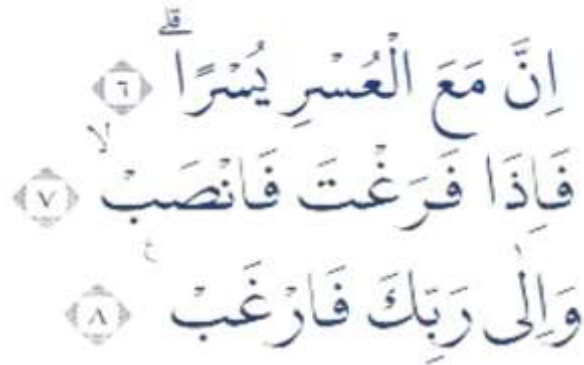 اِنَّ مَعَ الْعُسْرِ يُسْرًاۗ ٦
فَاِذَا فَرَغْتَ فَانْصَبْۙ ٧
وَاِلٰى رَبِّكَ فَارْغَبْ ࣖ ٨